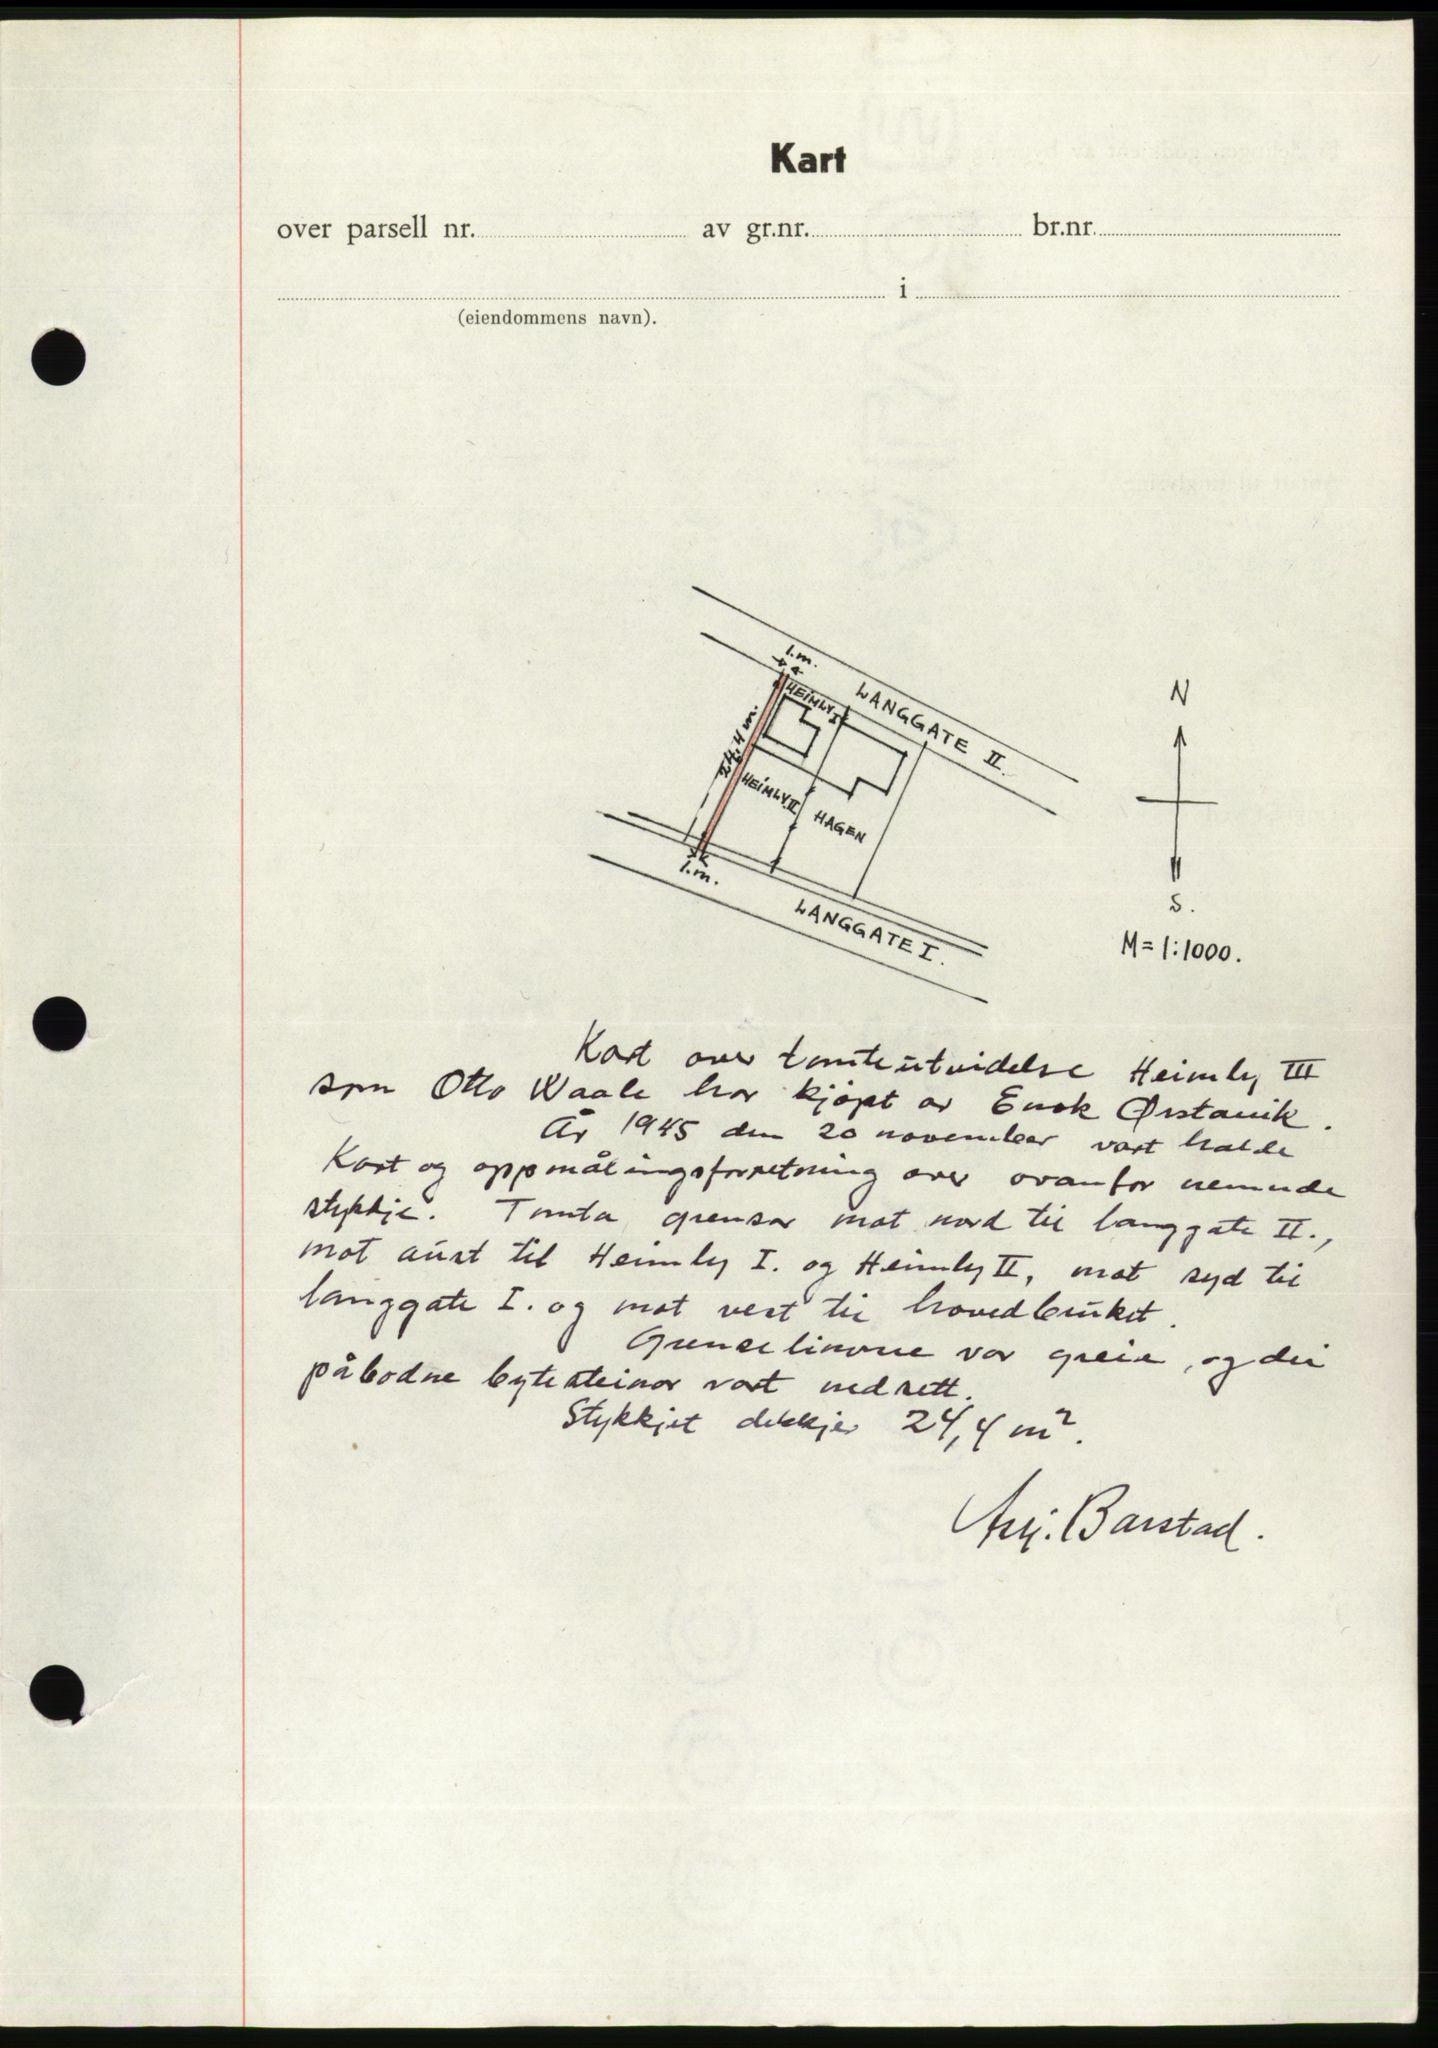 Kart
over parsell nr. av gr.nr. br.nr.
i
(eiendommens navn).
1.m.
HEIMLY I
LANGGATE II.
24.4 m.
HEIMLY II
HAGEN
1.m.
LANGGATE I.
N
S.
M = 1:1000.
Kart over tomteutvidelse Heimly III
som Otto Waale har kjøpt av Enok Ørstavik.
År 1945 den 20 november vart halde
Kart og oppmålingsforretning over ovanfor nemnde
stykkje. Tomta grensar mot nord til langgate II.,
mot aust til Heimly I. og Heimly II, mot syd til
langgate I. og mot vest til hovedbruket.
Grenselinone var greie, og dei
påbodne bytesteinar vart nedsett.
Stykkjet dekkjer 24,4 m².
Barstad.